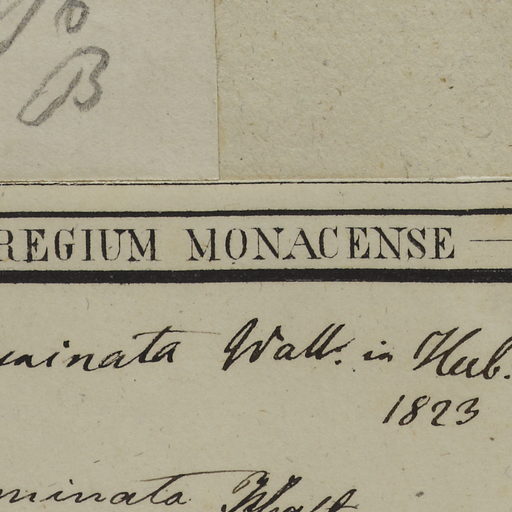 B
REGIUM MONACENSE
uminata Wall. in Herb.
1823
minata